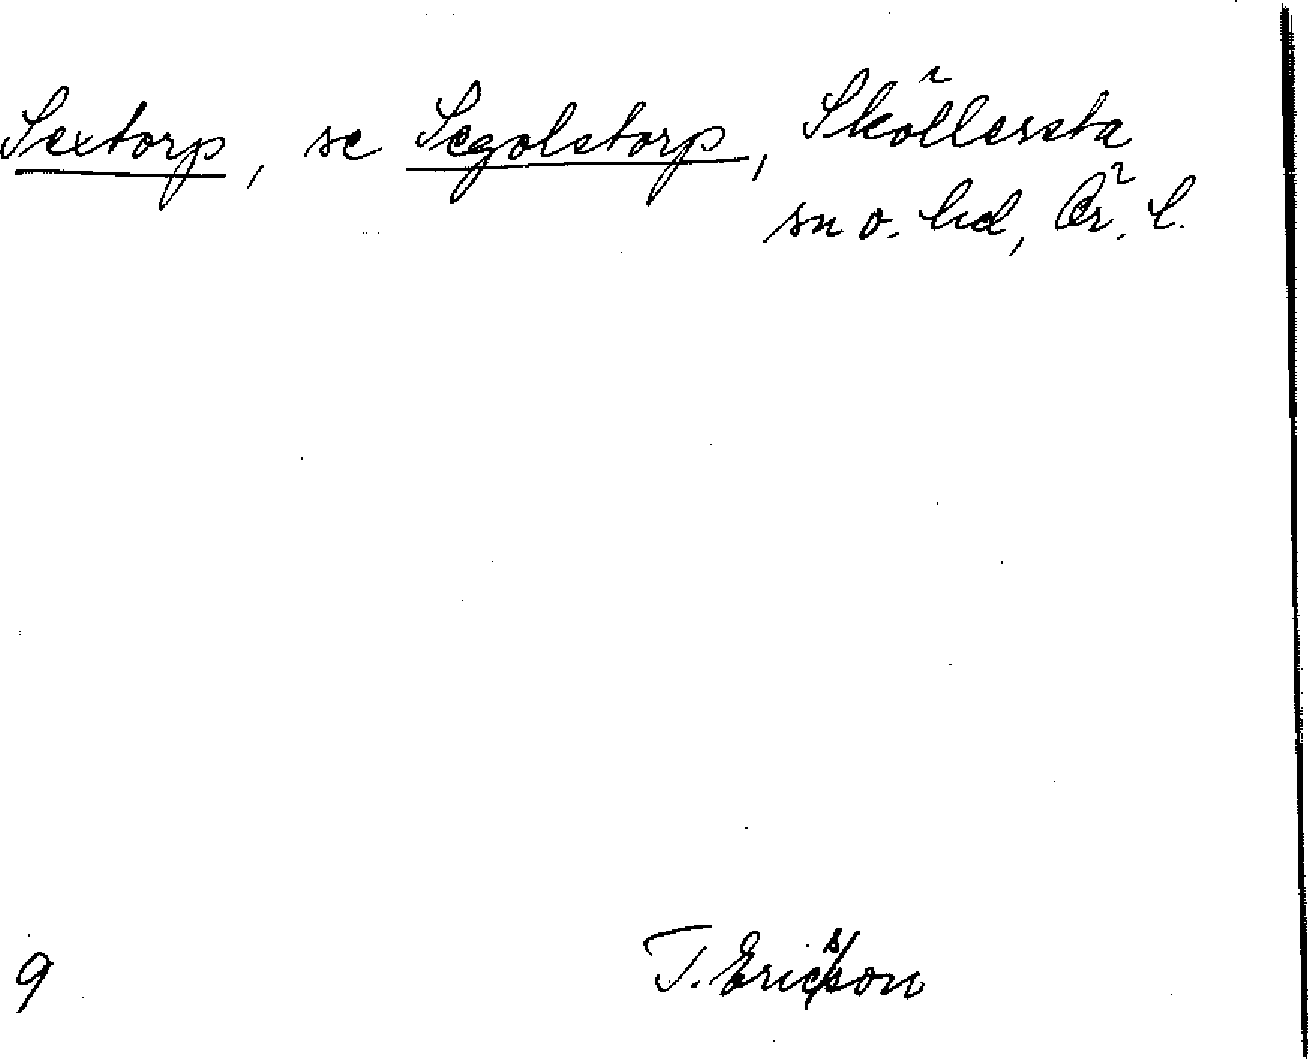 Sextorp, se Segolstorp, Sköllersta
sn o. hd, Ör. l.
9 T. Ericsson